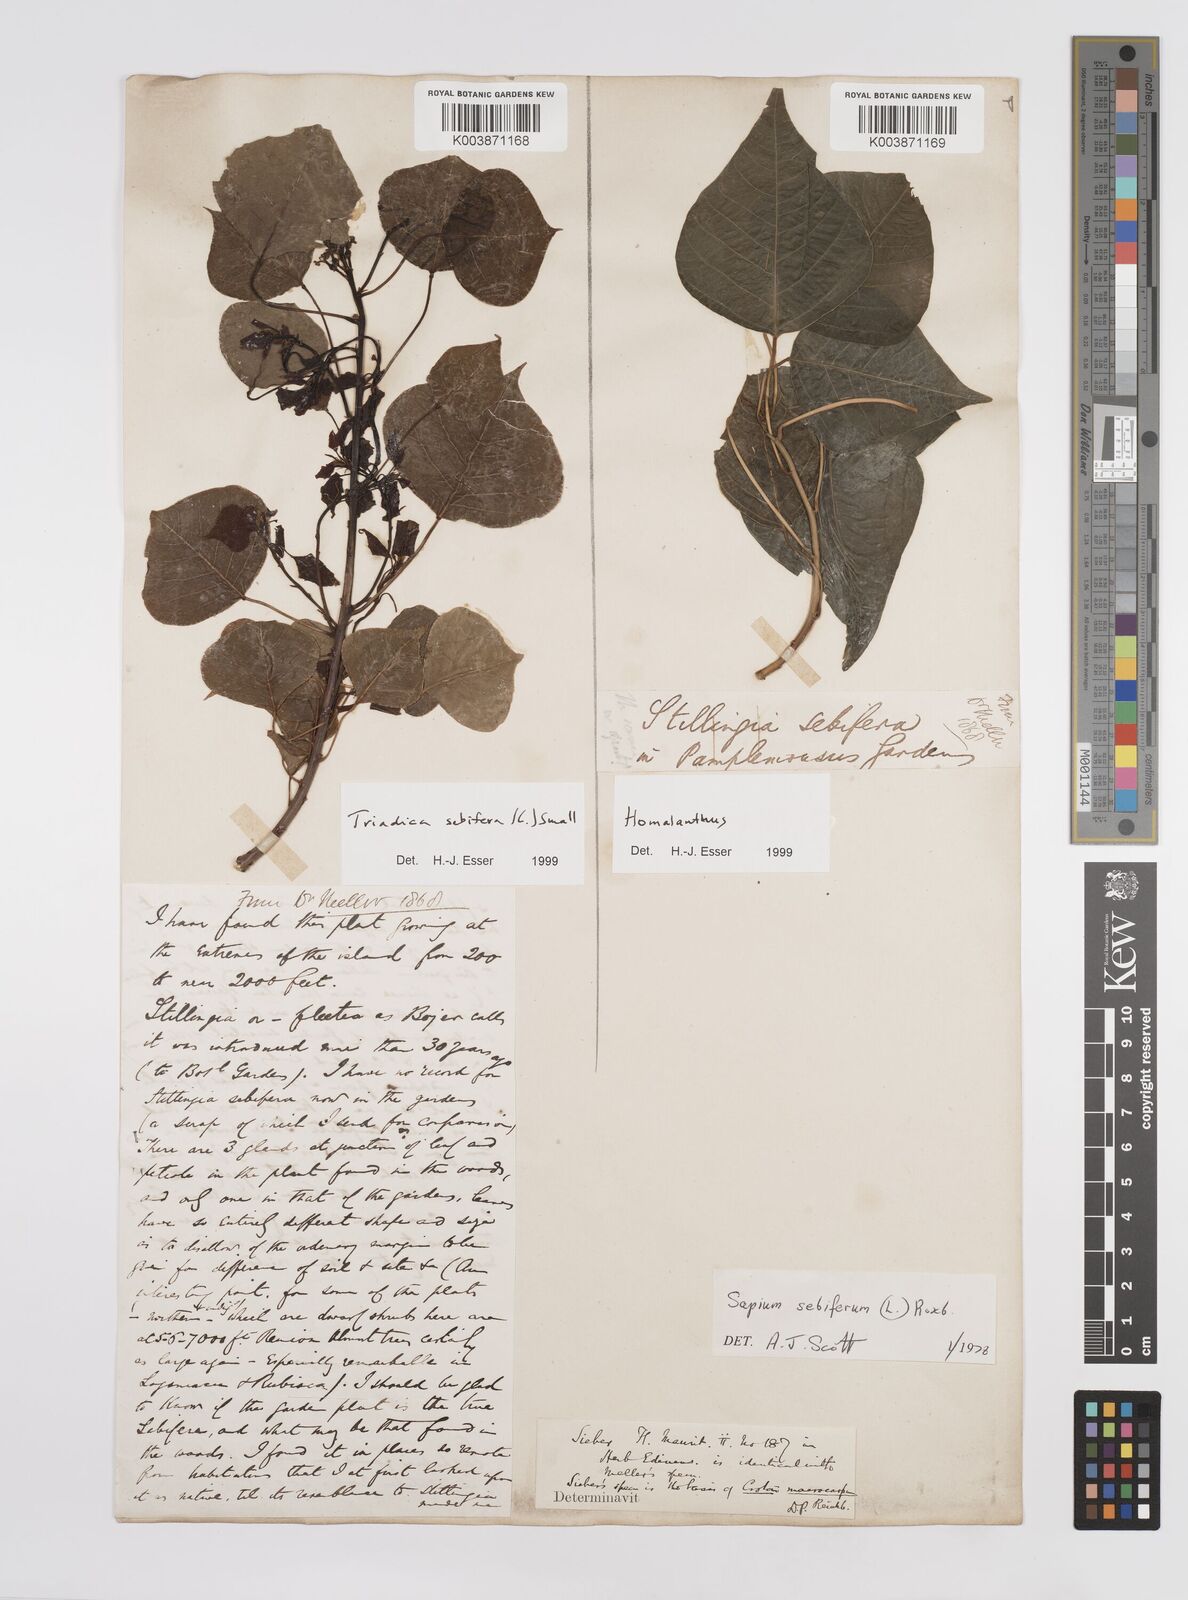 ROYAL BOTANIC GARDENS KEW
K003871168
ROYAL BOTANIC GARDENS KEW
K003871169
Stillingia sebifera
in Pamplemousses Gardens
From
Dr Meller
1868
Triadica sebifera (L.) Small
Det. H.-J. Esser 1999
Homalanthus
Det. H.-J. Esser 1999
From Dr Meller 1868
I have found this plant growing at
the extremes of the island from 200
to near 2000 feet.
Stillingia or - as Bojer calls
it was introduced more than 30 years ago
(to Bot Garden). I have no record for
Stillingia sebifera now in the gardens
(a scrap of which I send for comparison)
There are 3 glands at junction of leaf and
petiole in the plant found in the woods,
and only one in that of the gardens, leaves
have so entirely different shape and size
as to disallow of the ordinary margin to be
given for difference of soil & site &c (An
interesting point, for some of the plants
- northern - which are dwarf shrubs here are
at 5-6-7000 ft Reunion almost trees certainly
as large again - Especially remarkable in
). I should be glad
to know if the garden plant is the true
Sebifera, and what may be that found in
the woods. I found it in places so remote
from habitations that I at first looked upon
it as native, til its resemblance to Stillingia
made me
Sapium sebiferum (L.) Roxb.
DET. A.J. Scott 1/1978
Sieber Fl. Maurit. ii. No 187 in
Herb Edinens. is identical with
Meller's spem.
Sieber's spem is the basis of Croton macrocarpus
Determinavit
Reichb.
inches
centimetres
Density
Don Williams
M001144
Royal Botanic Gardens
Kew
0 1 2 3 4 5 6 7 8 9 10
cm
copyright reserved